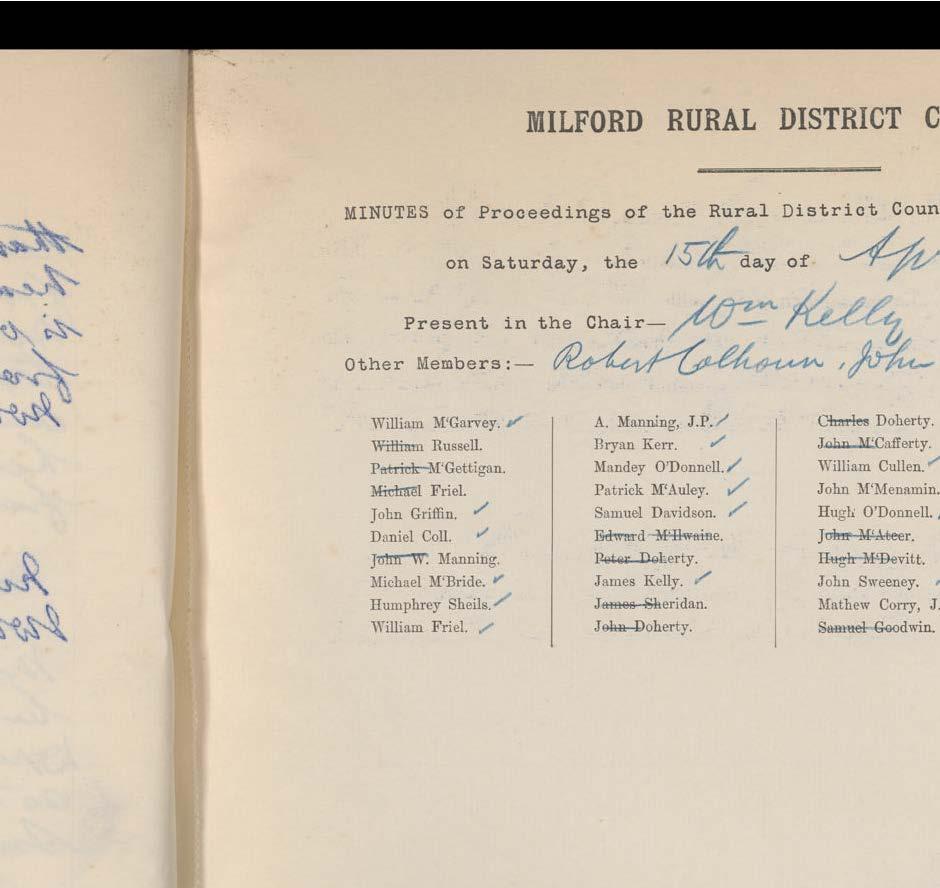 MILFORD RURAL DISTRICT C
MINUTES of Proceedings of the Rural District Coun
on Saturday, the 15th day of Ap
Present in the Chair— Wm Kelly
Other Members:— Robert Colhoun, John
William M‘Garvey.
William Russell.
Patrick M‘Gettigan.
Michael Friel.
John Griffin.
Daniel Coll.
John W. Manning.
Michael M‘Bride.
Humphrey Sheils.
William Friel.
A. Manning, J.P.
Bryan Kerr.
Mandey O’Donnell.
Patrick M‘Auley.
Samuel Davidson.
Edward M‘Ilwaine.
Peter Doherty.
James Kelly.
James Sheridan.
John Doherty.
Charles Doherty.
John M‘Cafferty.
William Cullen.
John M‘Menamin.
Hugh O’Donnell.
John M‘Ateer.
Hugh M‘Devitt.
John Sweeney.
Mathew Corry, J.
Samuel Goodwin.